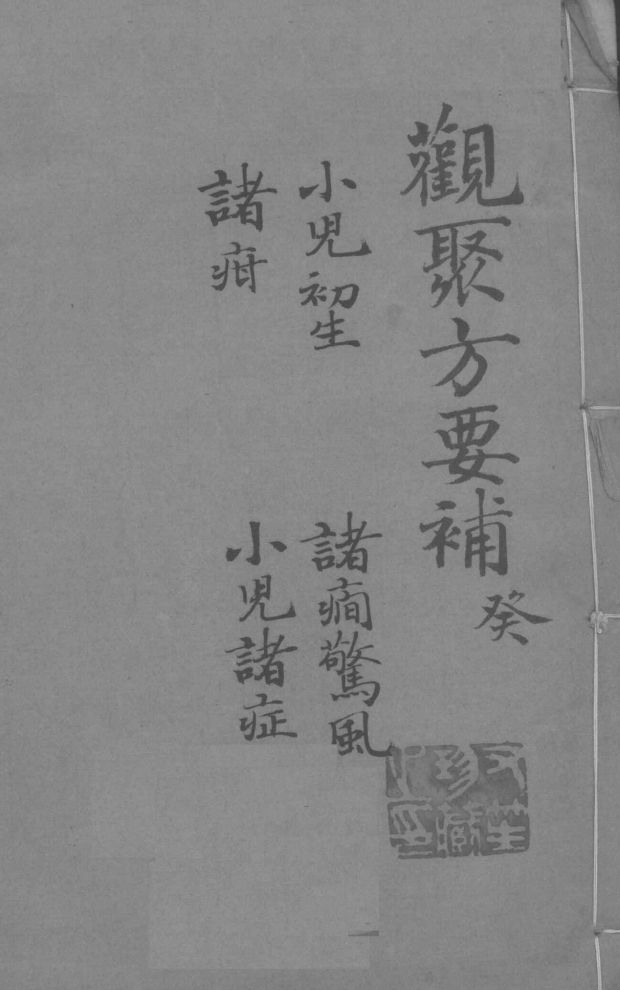 觀聚方要補 癸
小児初生
諸癇驚風
諸疳
小児諸症